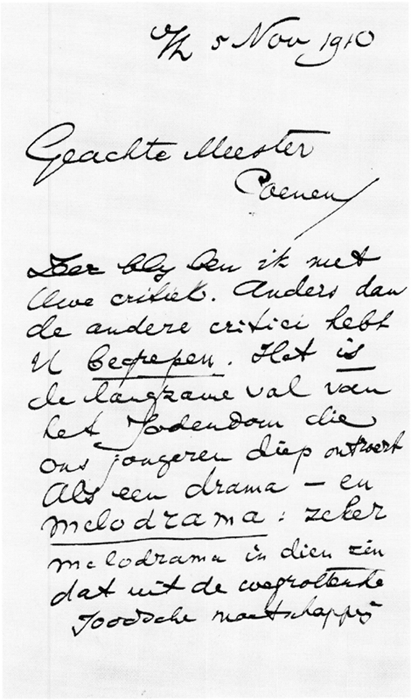 5 Nov 1910
Geachte Meester
Coenen
Zeer bly ben ik met
Uwe critiek. Anders dan
de andere critici hebt
U begrepen. Het is
de langzame val van
het Jodendom die
ons jongeren diep ontroert
Als een drama – en
melodrama: zeker
melodrama in dien zin
dat uit de wegrottende
Joodsche maatschappij